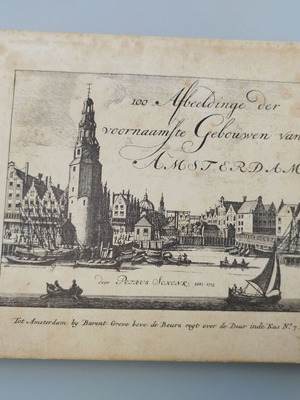 100 Afbeeldinge der
voornaamste Gebouwen van
AMSTERDAM
door PETRUS SCHENK
Tot Amsterdam by Barent Greve bove de Beurs regt over de Deur inde Kas N.º 7.